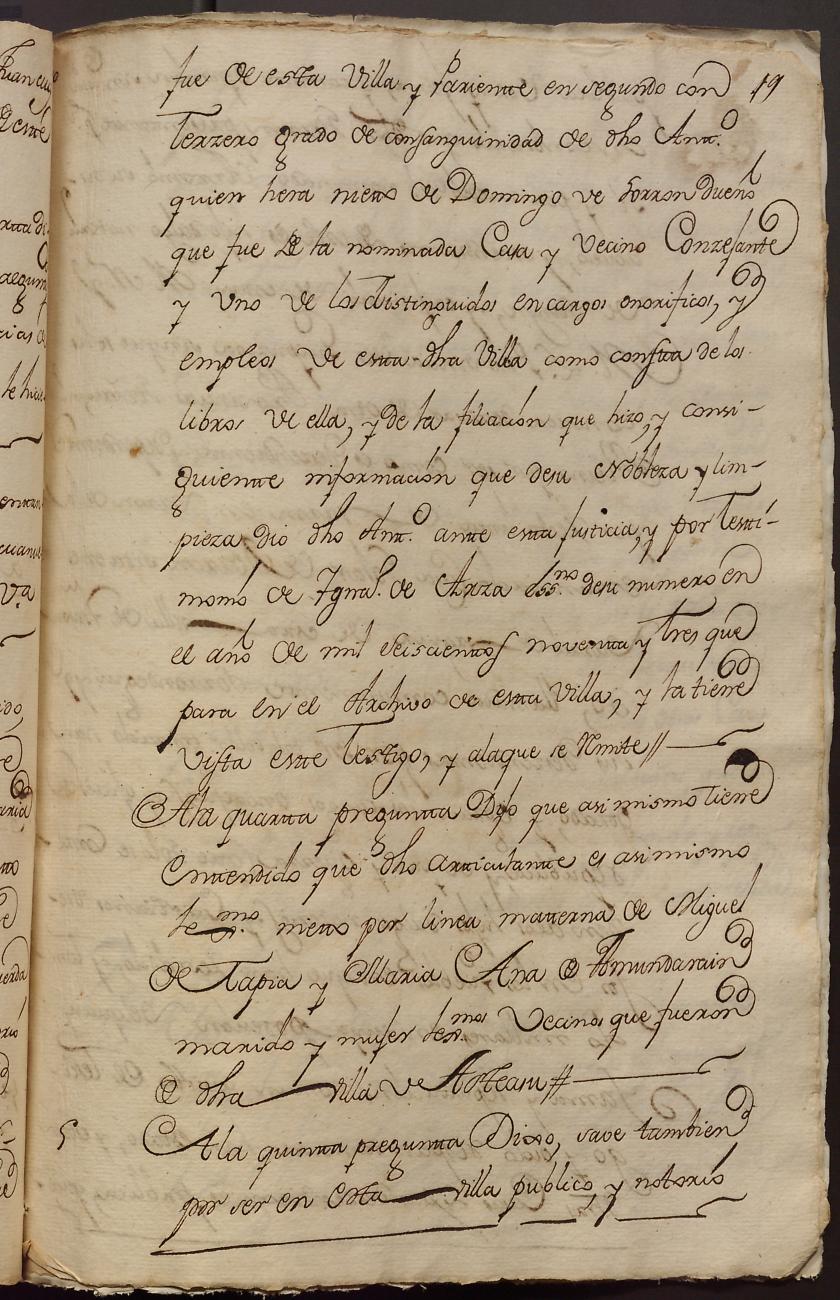 fue de esta Villa y Pariente en segundo con 19
terzero grado de consanguinidad de dho Antt.º
quien hera nieto de Domingo de dueño
que fue de la nominada Casa y Vecino Conzejante
y Uno de los distinguidos en cargos onorificos, y
empleos de esta dha Villa como consta de los
libros de ella, y de la filiación que hizo, y consi-
guiente información que de su Nobleza y lim-
pieza dio dho Antt.º ante esta Justicia, y por testi-
monio de Ignaº. de Arza essno de su numero en
el año de mil Seiscientos noventa y tres que
para en el Archivo de esta Villa, y la tiene
Vista este Testigo, y a la que se Remite //
A la quarta pregunta Dijo que asi mismo tiene
Entendido que dho articulante es asi mismo
lexmo nieto por linea materna de Miguel
de Tapia y Maria Ana de Amundarain
marido y mujer lexmos Vecinos que fueron
de dha Villa de Asteasu //
5 A la quinta pregunta Dixo, save tambien
por ser en Esta villa publico, y notorio